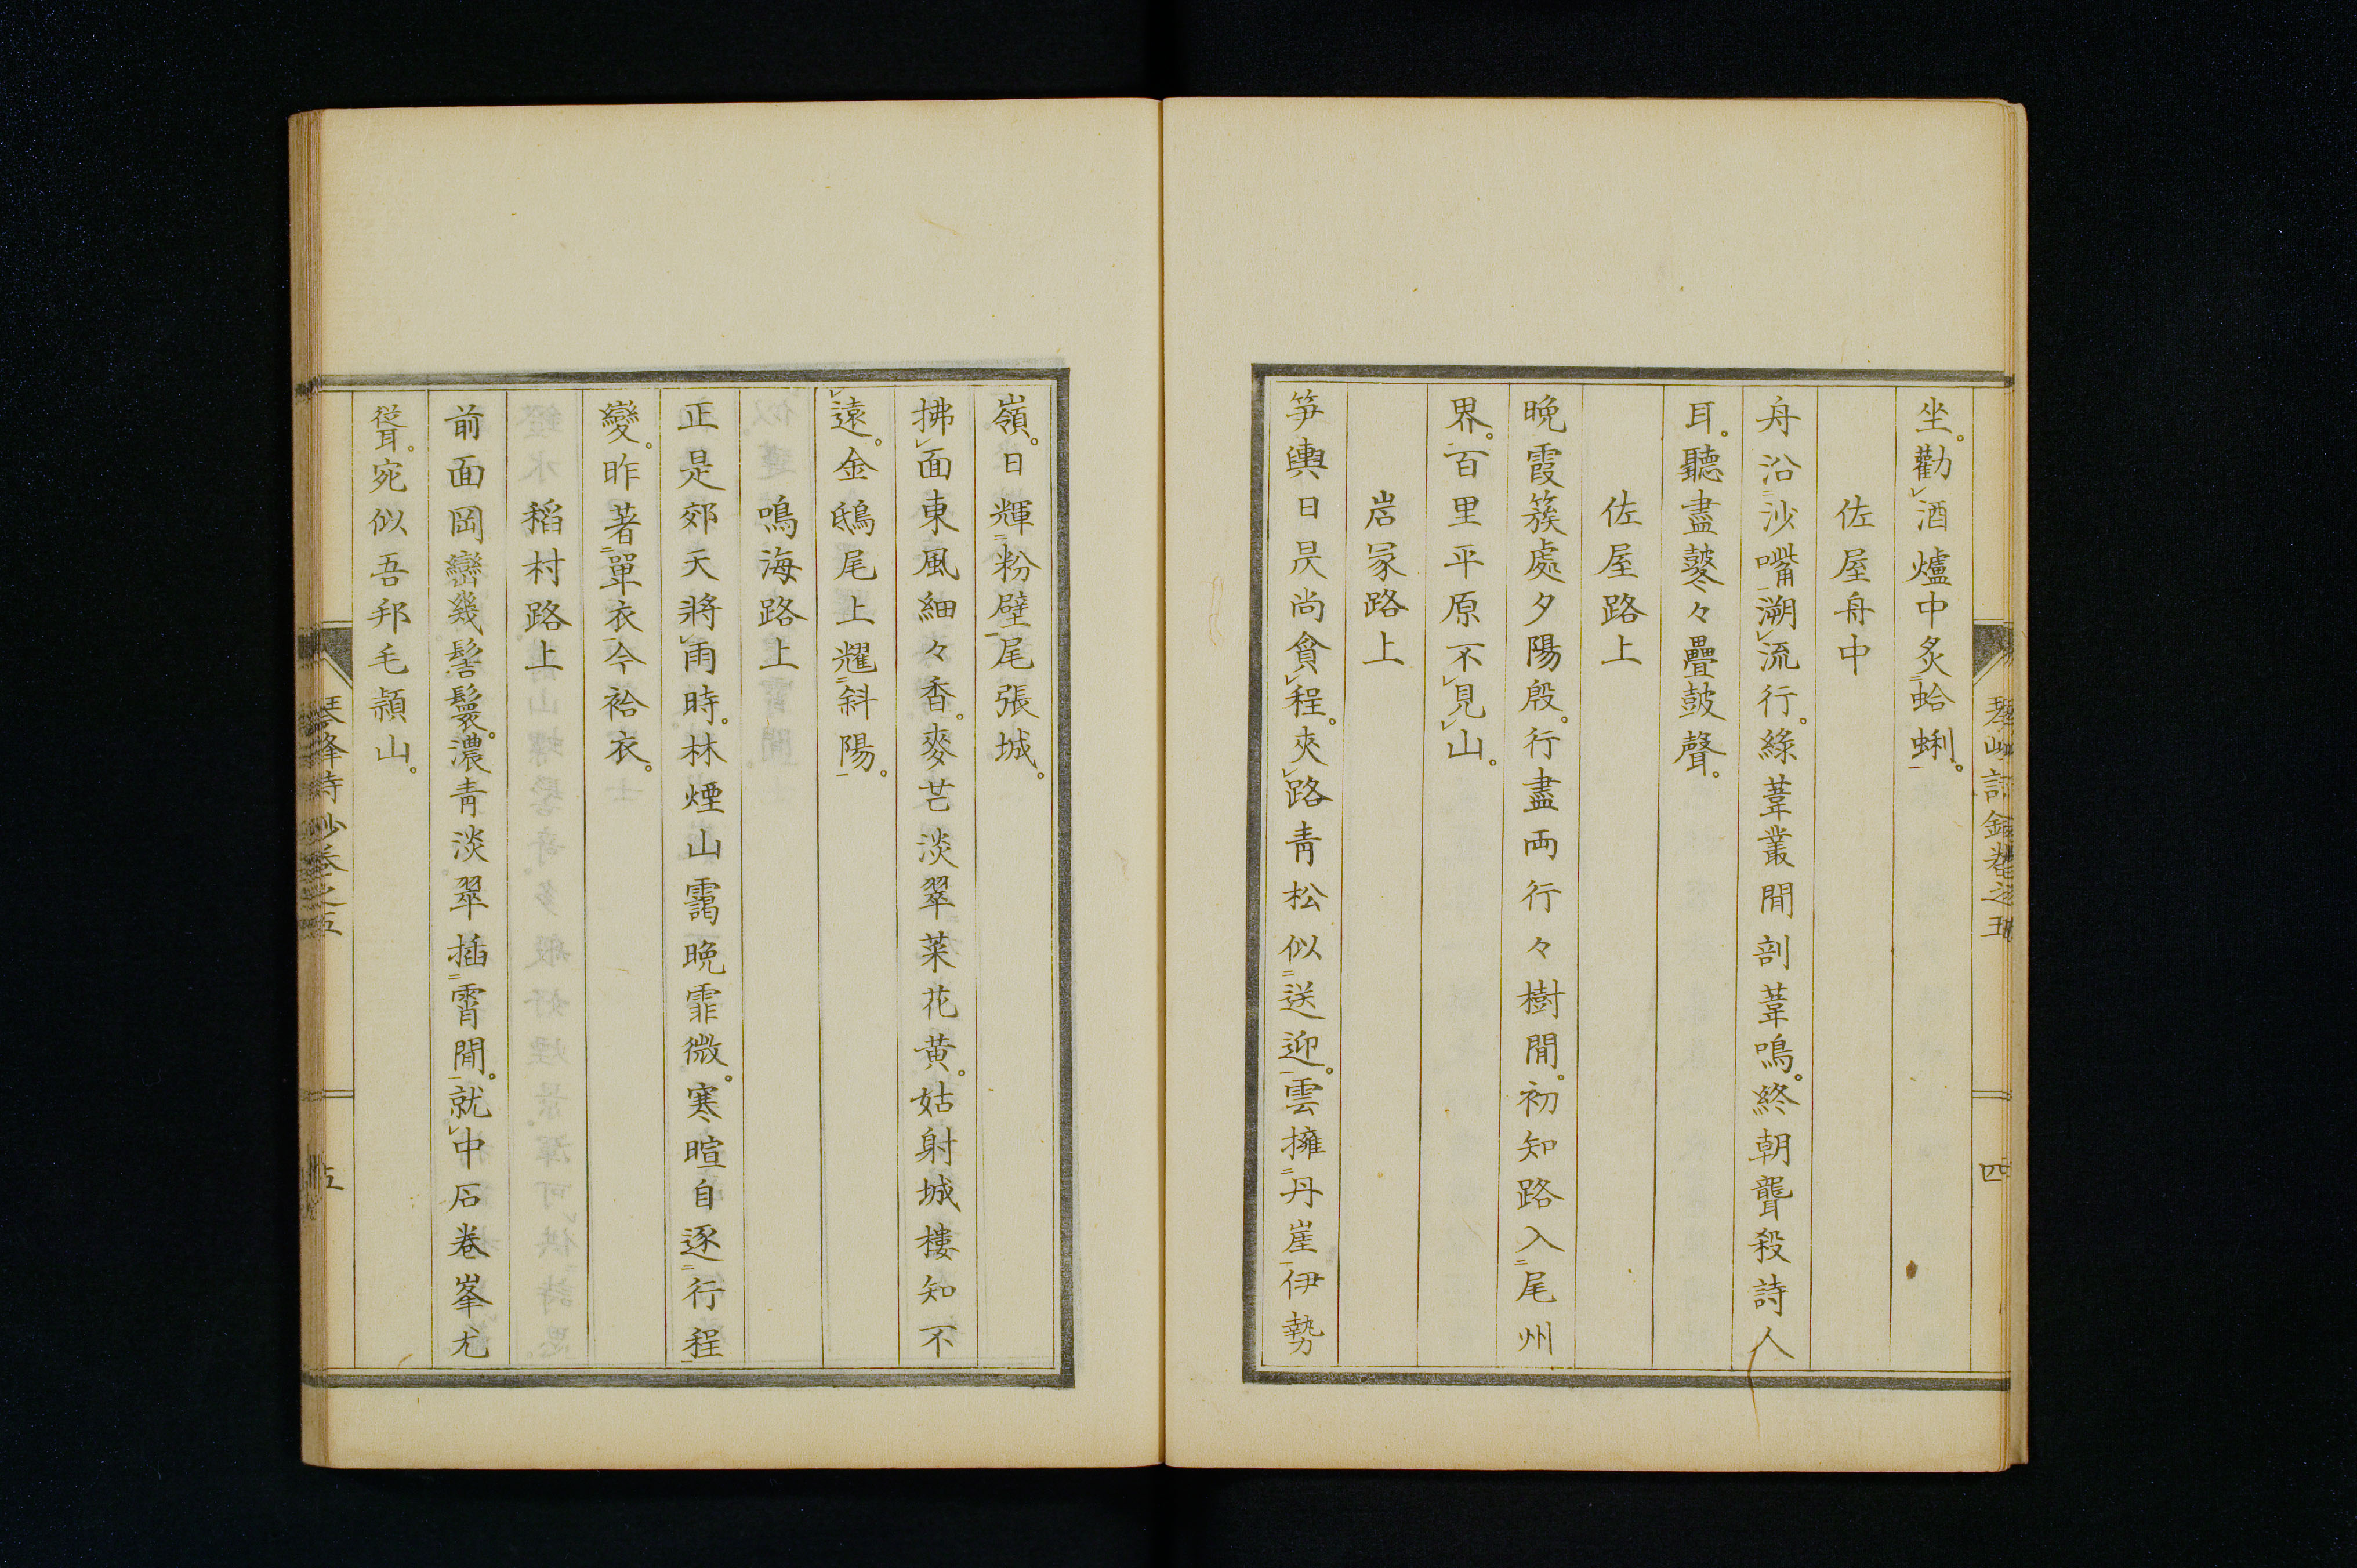 坐。勸酒爐中炙蛤蜊。
佐屋舟中
舟沿沙嘴溯流行。綠葦叢間剖葦鳴。終朝聾殺詩人
耳。聽盡鼕々疊鼓聲。
佐屋路上
晩霞簇處夕陽殷。行盡両行々樹間。初知路入尾州
界。百里平原不見山。
岩冢路上
笋輿日昃尚貪程。夾路青松似送迎。雲擁丹崖伊勢
嶺。日輝粉壁尾張城。
拂面東風細々香。麥芒淡翠菜花黄。姑射城樓知不
遠。金鴟尾上耀斜陽。
鳴海路上
正是郊天將雨時。林煙山靄晩霏微。寒暄自逐行程
變。昨著單衣今袷衣。
稻村路上
前面岡巒幾髻鬟。濃青淡翠插霄間。就中石巻峯尤
聳。宛似吾邦毛頴山。
峰詩鈔巻之五
五
四